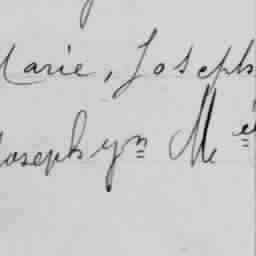 Marie, Joseph
Josephyn Mé